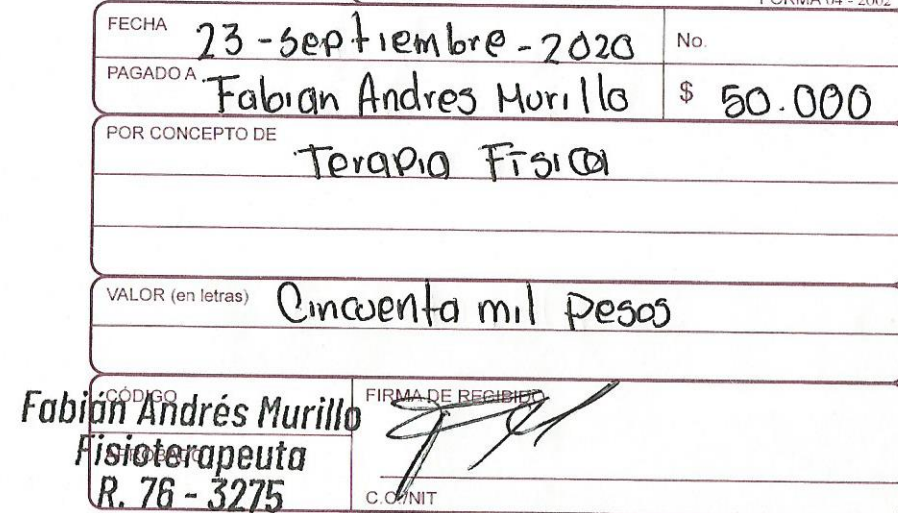 FORMA 04 - 2002
FECHA 23-septiembre-2020 No.
PAGADO A Fabian Andres Murillo $ 50.000
POR CONCEPTO DE
Terapia Física
VALOR (en letras) Cincuenta mil pesos
CÓDIGO FIRMA DE RECIBIDO
Fabián Andrés Murillo
APROBADO
Fisioterapeuta
R. 76 - 3275
C.C./NIT